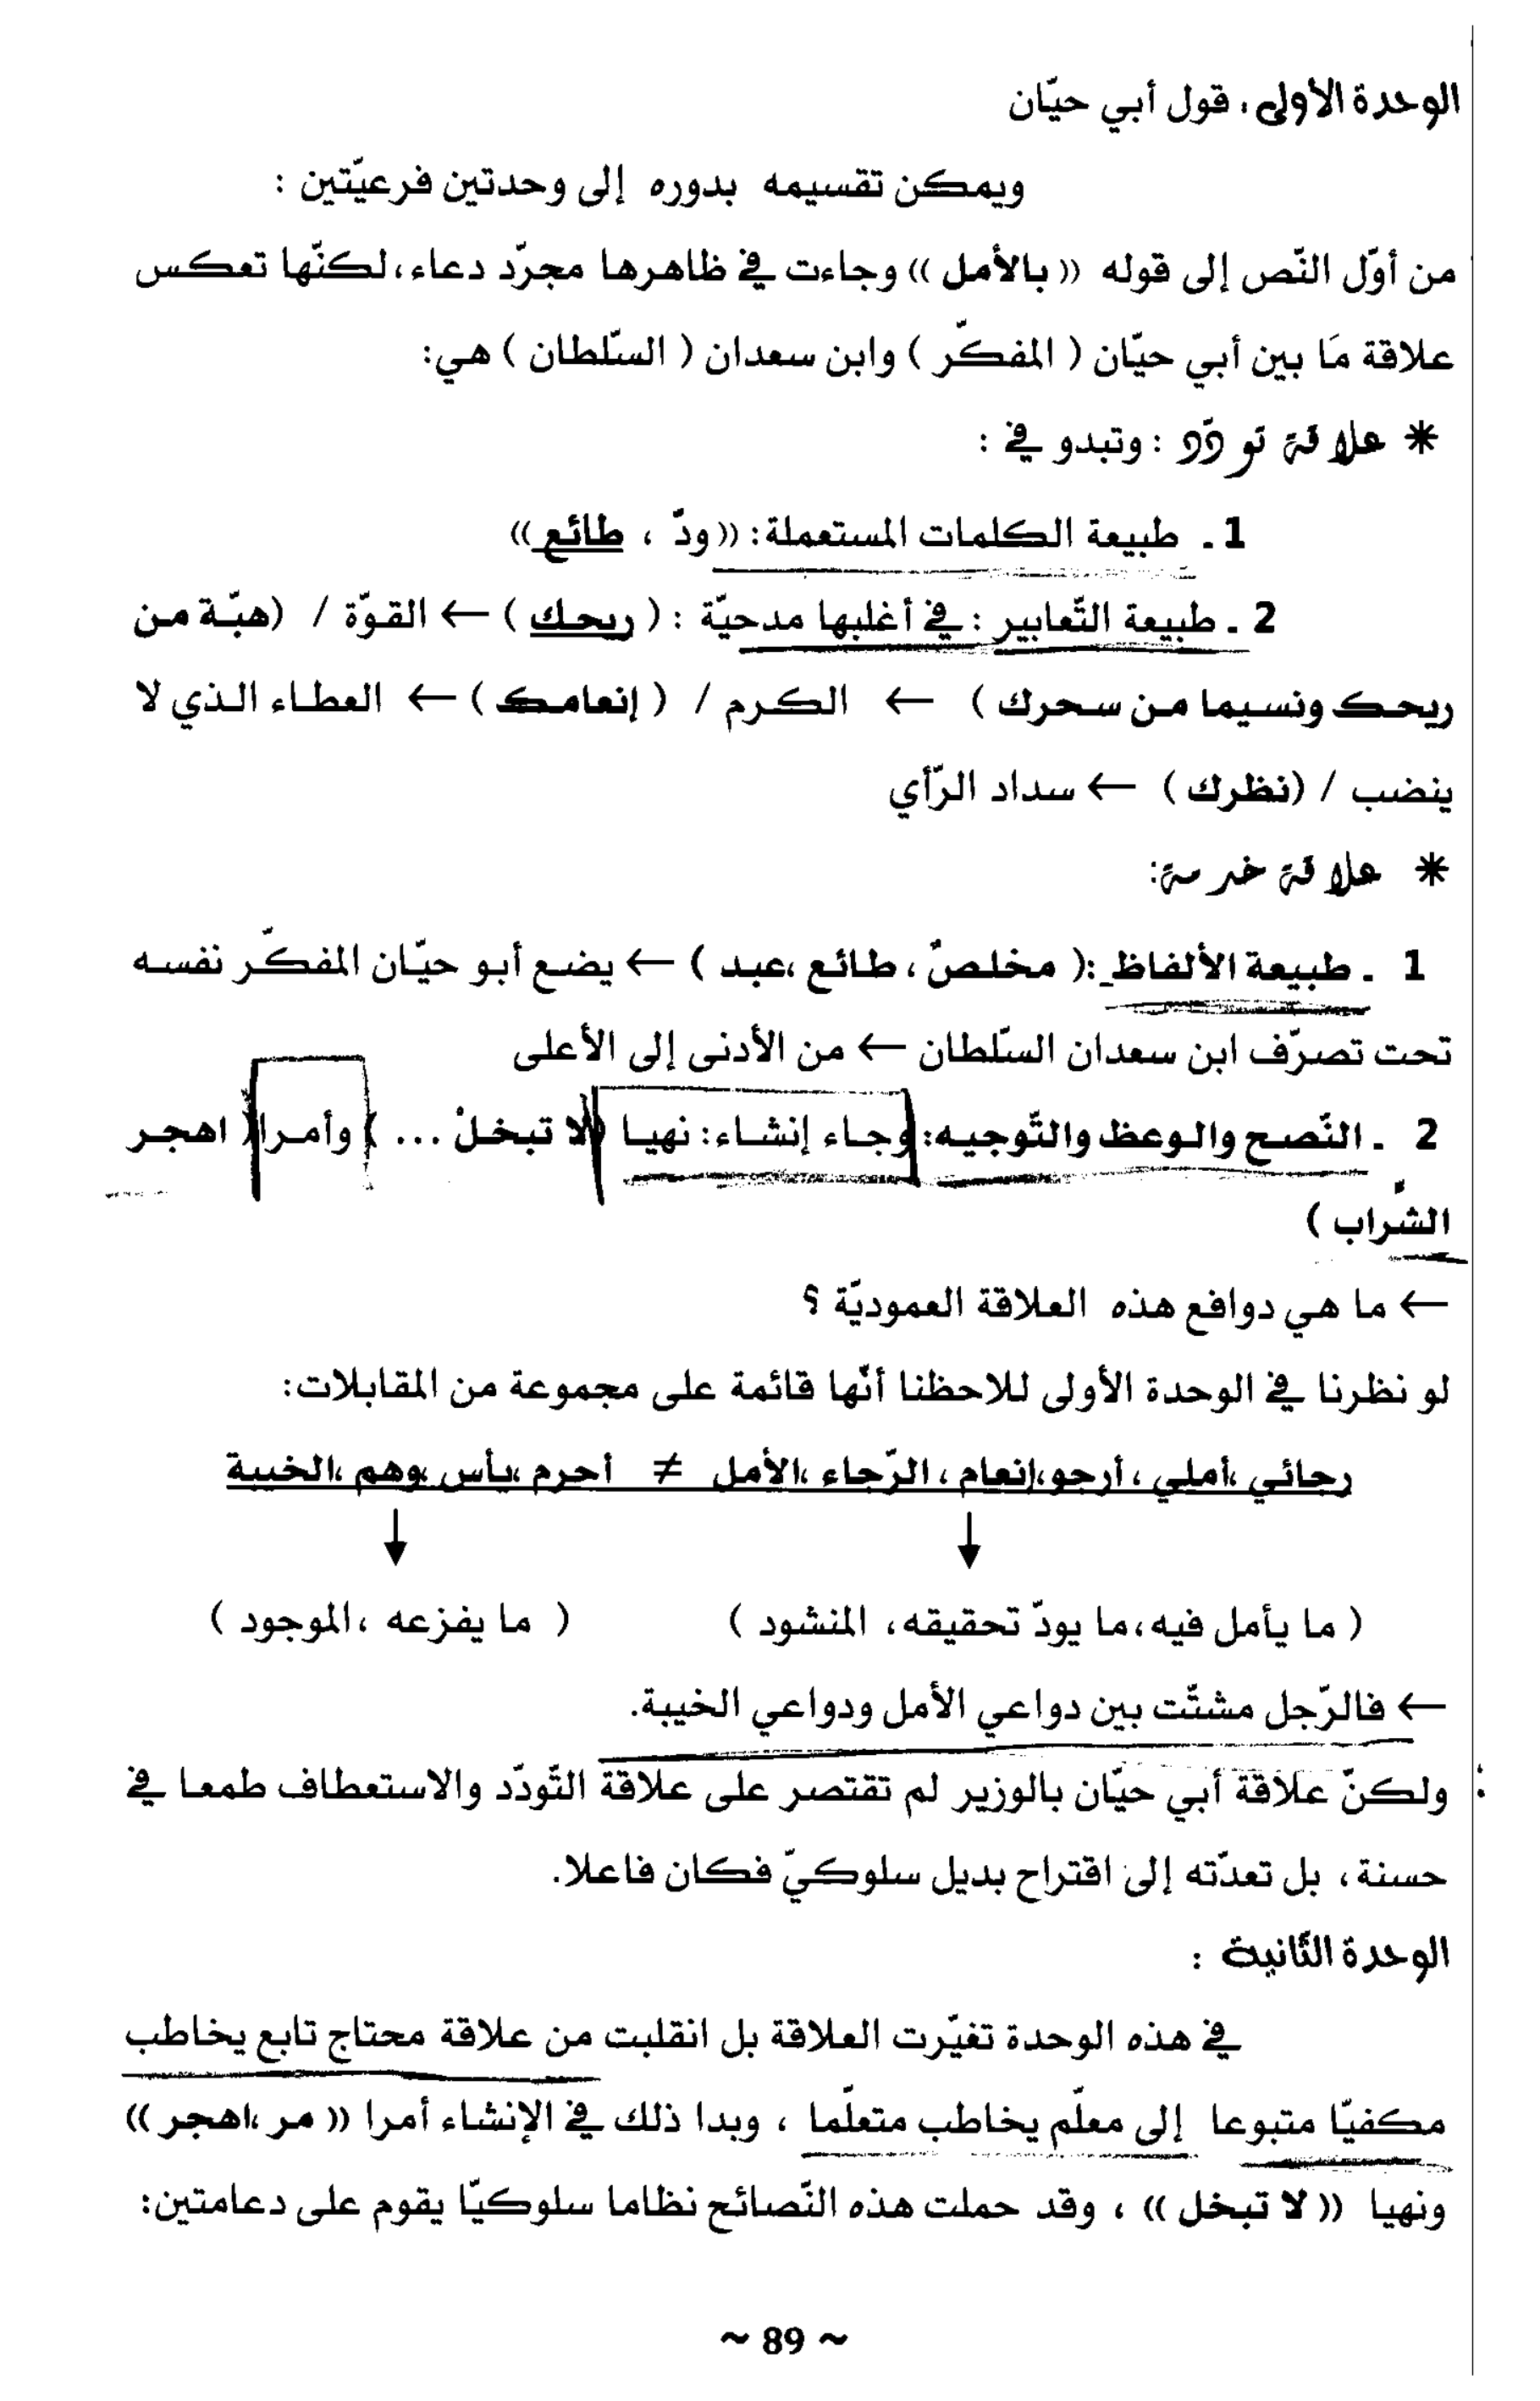 الوحدة الأولى، قول أبي حيّان
ويمكن تقسيمه بدوره إلى وحدتين فرعيّتين :
من أوّل النّص إلى قوله «بالأمل» وجاءت في ظاهرها مجرّد دعاء،لكنّها تعكس
علاقة مَا بين أبي حيّان ( المفكّر ) وابن سعدان ( السّلطان ) هي:
* علاقة تودّد : وتبدو في :
1. طبيعة الكلمات المستعملة: «ودّ ، طائع»
2. طبيعة التّعابير : في أغلبها مدحيّة : ( ريحك ) ← القوّة / (هبّة من
ريحك ونسيما من سحرك ) ← الكرم / ( إنعامك ) ← العطاء الذي لا
ينضب / (نظرك ) ← سداد الرّأي
* علاقة خدمة:
1 . طبيعة الألفاظ :( مخلصٌ ، طائع ،عبد ) ← يضع أبو حيّان المفكّر نفسه
تحت تصرّف ابن سعدان السّلطان ← من الأدنى إلى الأعلى
2 . النّصح والوعظ والتّوجيه: وجاء إنشاء: نهيا (لا تبخلْ ... ) وأمرا ( اهجر
الشّراب )
← ما هي دوافع هذه العلاقة العموديّة ؟
لو نظرنا في الوحدة الأولى للاحظنا أنّها قائمة على مجموعة من المقابلات:
رجائي ،أملي ، أرجو،إنعام ، الرّجاء ،الأمل ≠ أحرم ،يأس ،وهم ،الخيبة
( ما يأمل فيه،ما يودّ تحقيقه، المنشود ) ( ما يفزعه ،الموجود )
← فالرّجل مشتّت بين دواعي الأمل ودواعي الخيبة.
ولكنّ علاقة أبي حيّان بالوزير لم تقتصر على علاقة التّودّد والاستعطاف طمعا في
حسنة، بل تعدّته إلى اقتراح بديل سلوكيّ فكان فاعلا.
الوحدة الثّانية :
في هذه الوحدة تغيّرت العلاقة بل انقلبت من علاقة محتاج تابع يخاطب
مكفيّا متبوعا إلى معلّم يخاطب متعلّما ، وبدا ذلك في الإنشاء أمرا « مر ،اهجر »
ونهيا « لا تبخل » ، وقد حملت هذه النّصائح نظاما سلوكيّا يقوم على دعامتين:
~ 89 ~